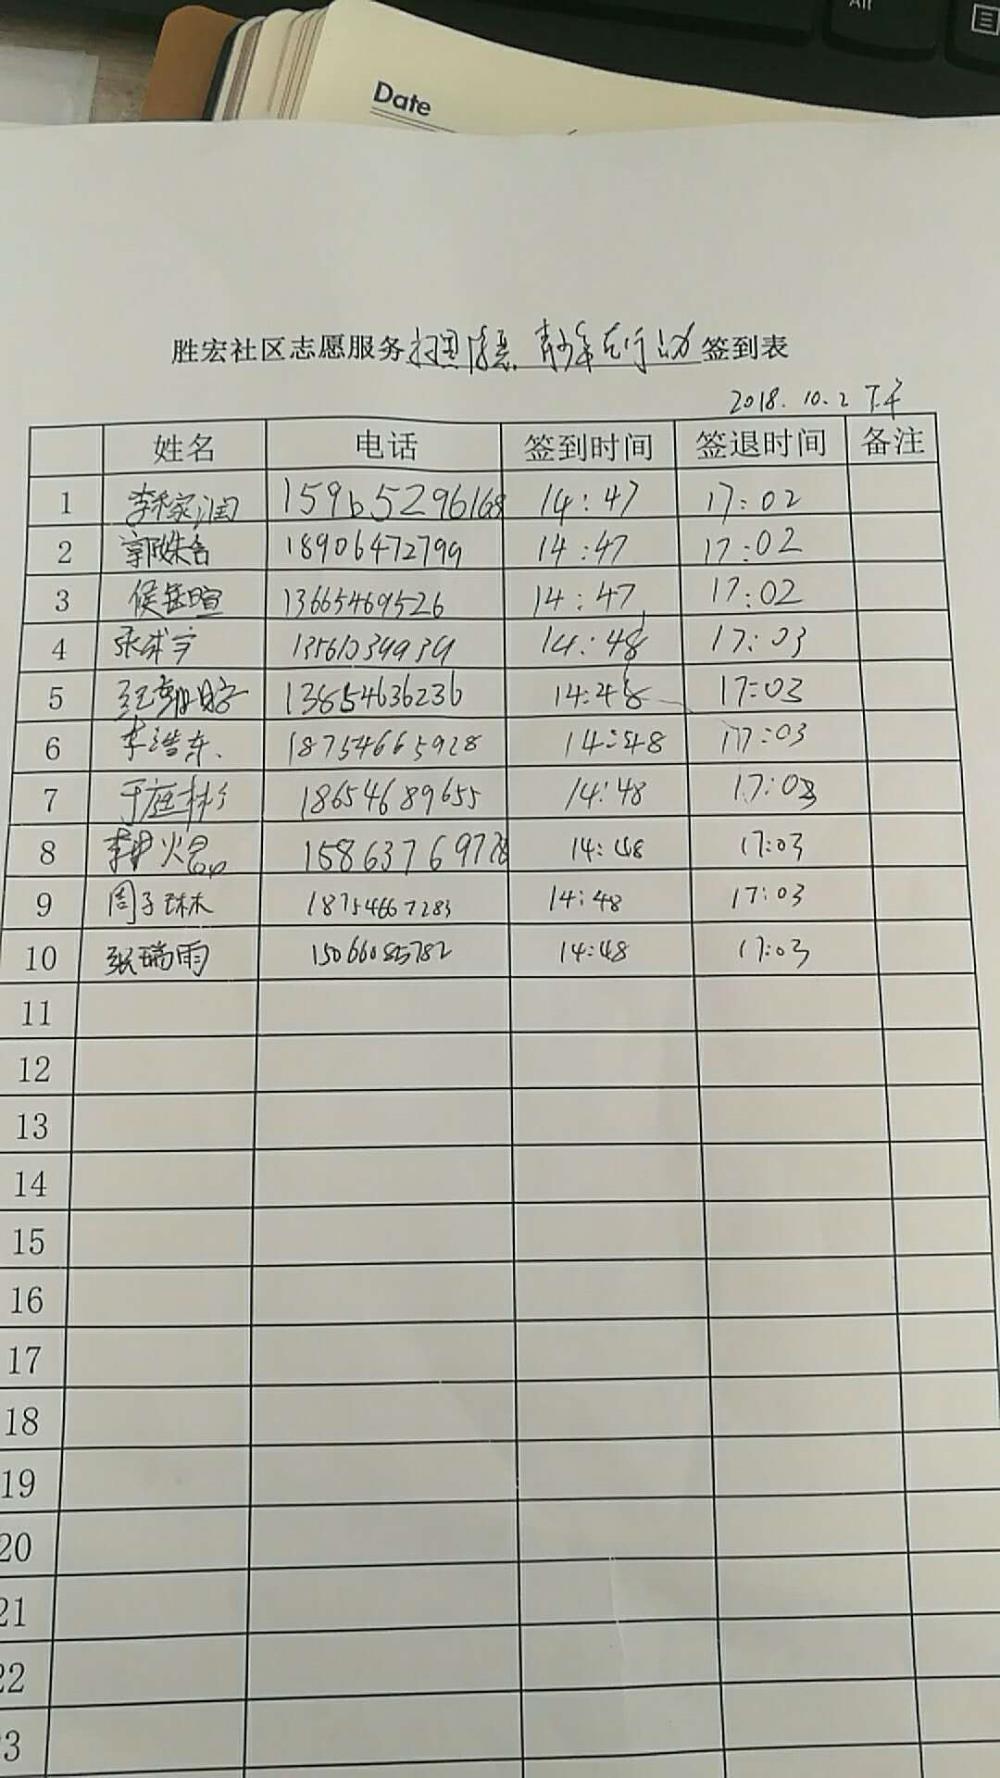 Alt
Date
胜宏社区志愿服务扫黑除恶 青少年在行动签到表
2018.10.2 下午
姓名 电话 签到时间 签退时间 备注
1 李家润 15965296168 14:47 17:02
2 郭姝含 18906472799 14:47 17:02
3 侯岳暄 13665469526 14:47 17:02
4 张 13561039939 14:48 17:03
5 13854636236 14:48 17:03
6 李浩东 18754665928 14:48 17:03
7 于庭彬 18654689655 14:48 17:03
8 15863769778 14:48 17:03
9 周子琳 18754667283 14:48 17:03
10 张瑞雨 15066085782 14:48 17:03
11
12
13
14
15
16
17
18
19
20
21
22
3